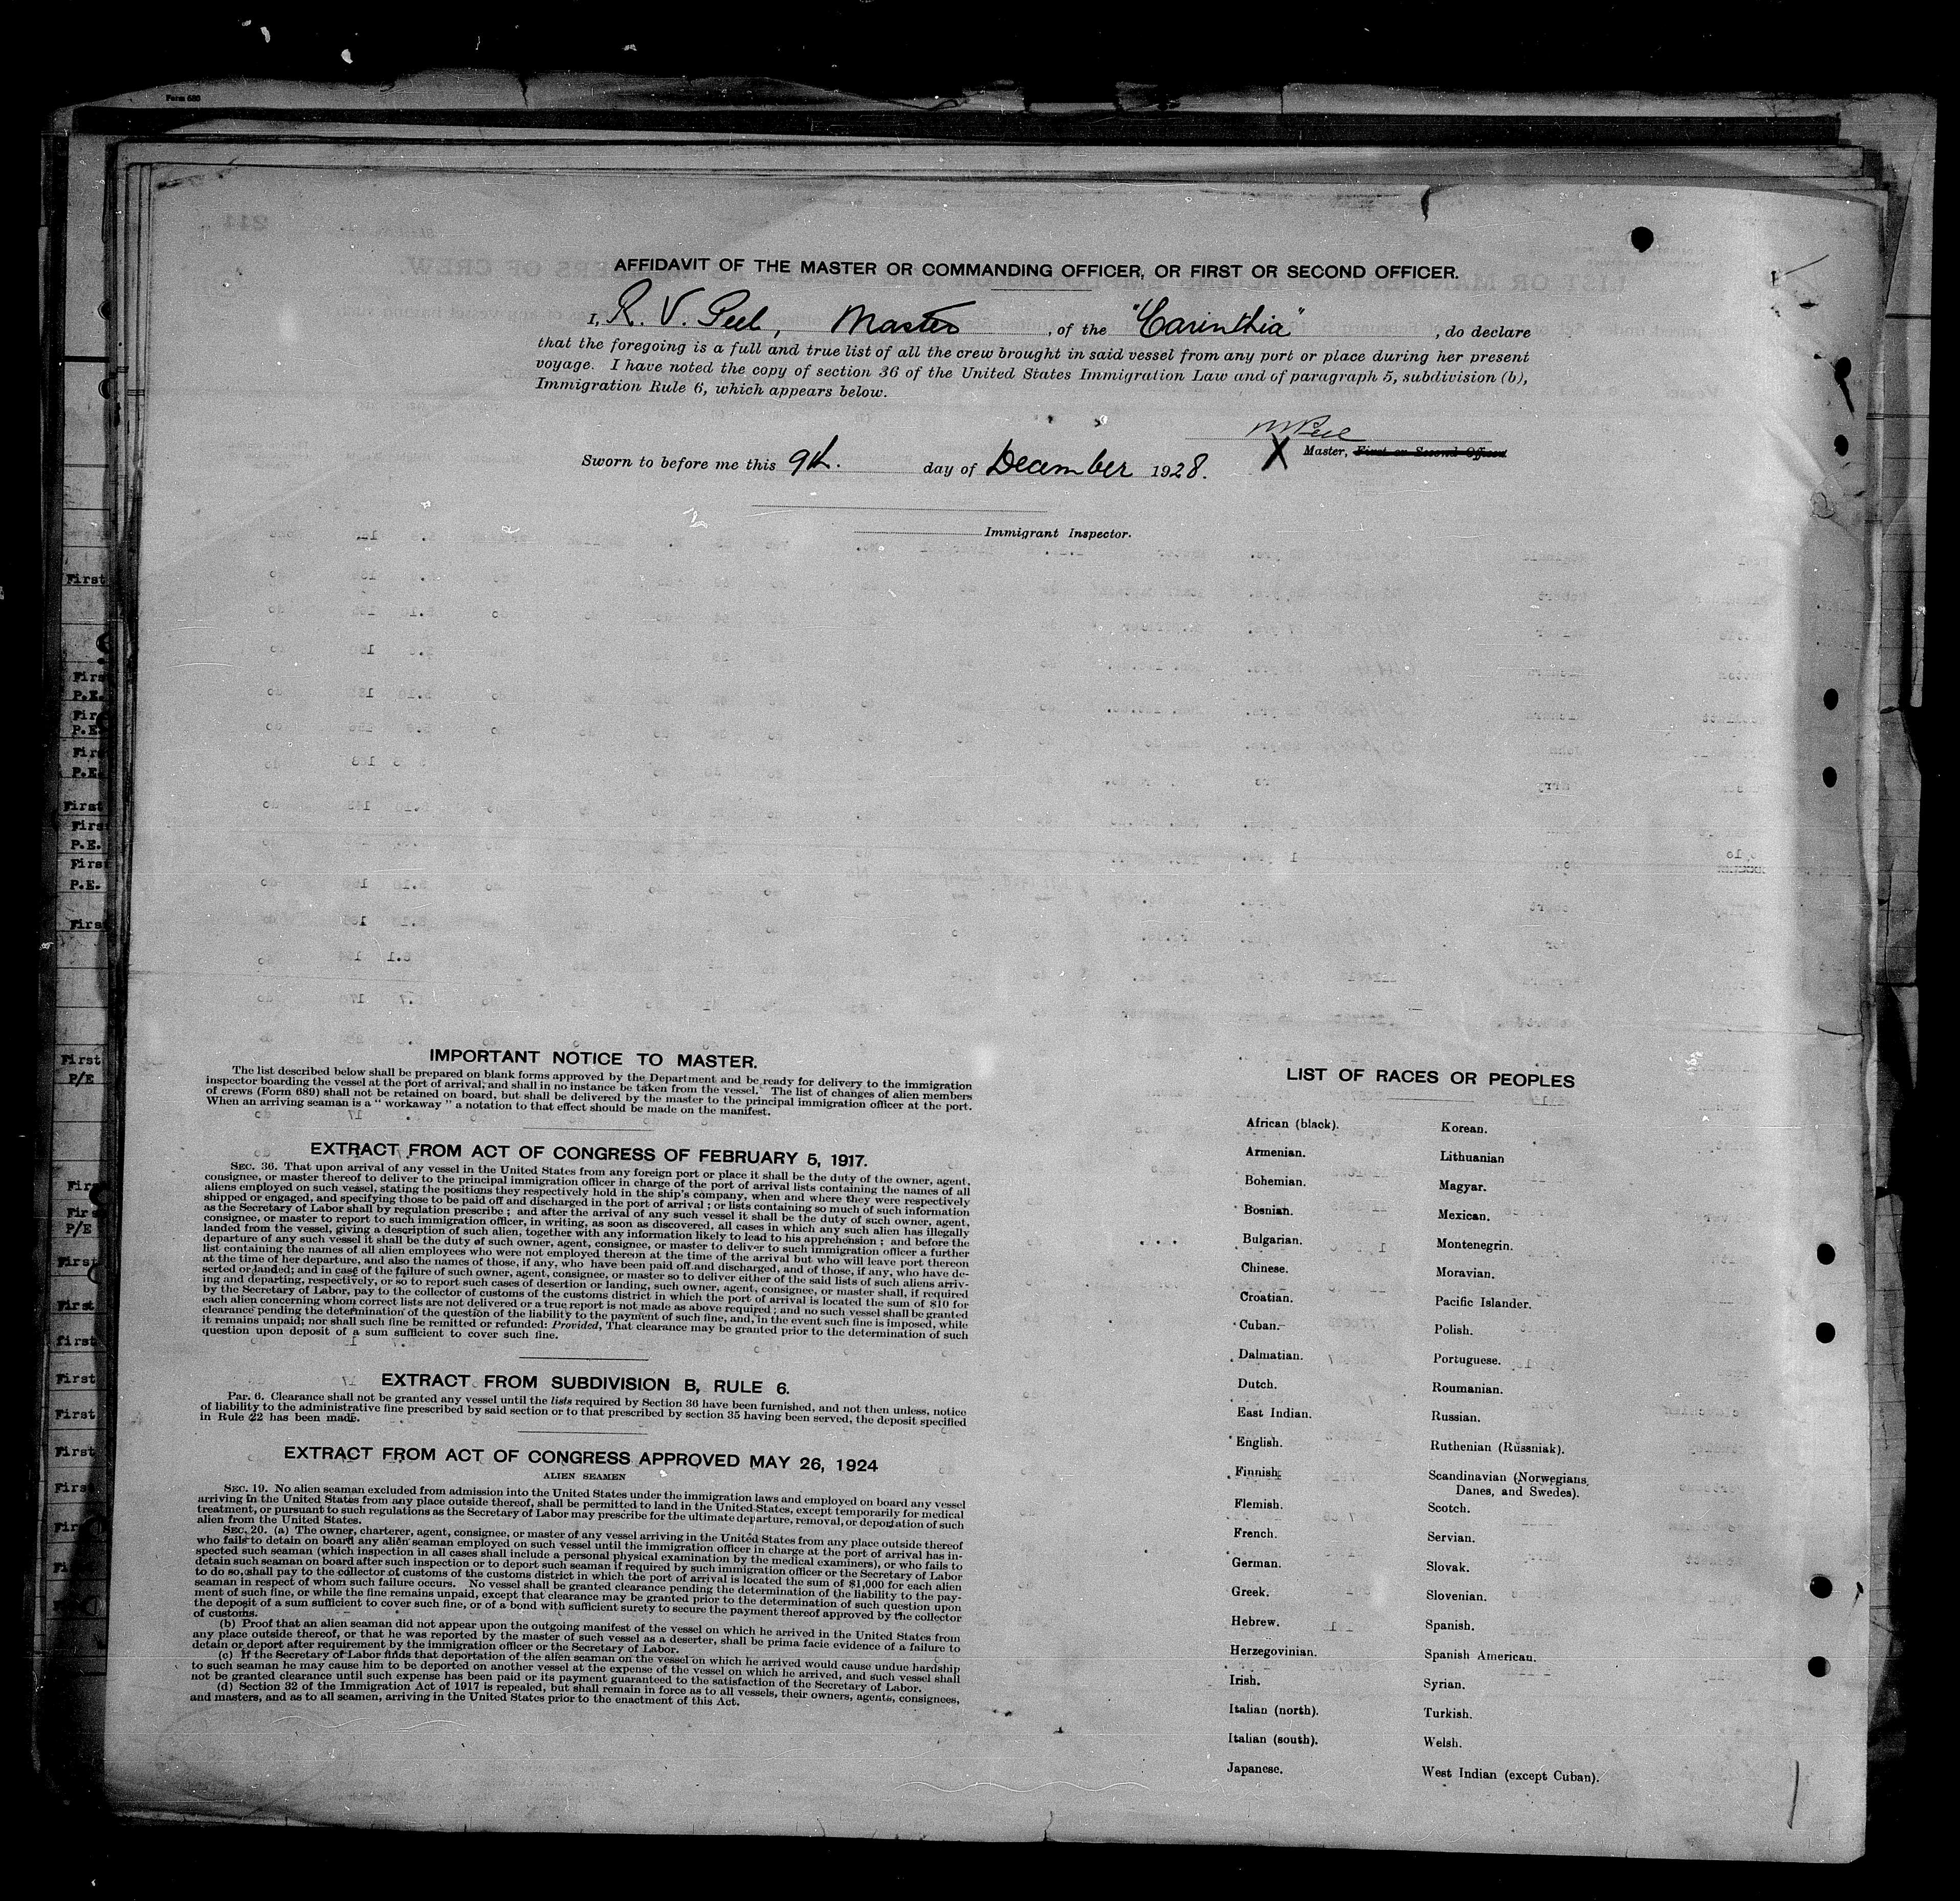 Form 680
AFFIDAVIT OF THE MASTER OR COMMANDING OFFICER, OR FIRST OR SECOND OFFICER.
I, R. V. Peel, Master, of the "Carinthia", do declare
that the foregoing is a full and true list of all the crew brought in said vessel from any port or place during her present
voyage. I have noted the copy of section 36 of the United States Immigration Law and of paragraph 5, subdivision (b),
Immigration Rule 6, which appears below.
Peel
X Master, First or Second Officer
Sworn to before me this 9th. day of December 1928.
Immigrant Inspector.
IMPORTANT NOTICE TO MASTER.
The list described below shall be prepared on blank forms approved by the Department and be ready for delivery to the immigration
inspector boarding the vessel at the port of arrival, and shall in no instance be taken from the vessel. The list of changes of alien members
of crews (Form 689) shall not be retained on board, but shall be delivered by the master to the principal immigration officer at the port.
When an arriving seaman is a "workaway" a notation to that effect should be made on the manifest.
EXTRACT FROM ACT OF CONGRESS OF FEBRUARY 5, 1917.
SEC. 36. That upon arrival of any vessel in the United States from any foreign port or place it shall be the duty of the owner, agent,
consignee, or master thereof to deliver to the principal immigration officer in charge of the port of arrival lists containing the names of all
aliens employed on such vessel, stating the positions they respectively hold in the ship's company, when and where they were respectively
shipped or engaged, and specifying those to be paid off and discharged in the port of arrival; or lists containing so much of such information
as the Secretary of Labor shall by regulation prescribe; and after the arrival of any such vessel it shall be the duty of such owner, agent,
consignee, or master to report to such immigration officer, in writing, as soon as discovered, all cases in which any such alien has illegally
landed from the vessel, giving a description of such alien, together with any information likely to lead to his apprehension; and before the
departure of any such vessel it shall be the duty of such owner, agent, consignee, or master to deliver to such immigration officer a further
list containing the names of all alien employees who were not employed thereon at the time of the arrival but who will leave port thereon
at the time of her departure, and also the names of those, if any, who have been paid off and discharged, and of those, if any, who have de-
serted or landed; and in case of the failure of such owner, agent, consignee, or master so to deliver either of the said lists of such aliens arriv-
ing and departing, respectively, or so to report such cases of desertion or landing, such owner, agent, consignee, or master shall, if required
by the Secretary of Labor, pay to the collector of customs of the customs district in which the port of arrival is located the sum of $10 for
each alien concerning whom correct lists are not delivered or a true report is not made as above required; and no such vessel shall be granted
clearance pending the determination of the question of the liability to the payment of such fine, and, in the event such fine is imposed, while
it remains unpaid; nor shall such fine be remitted or refunded: Provided, That clearance may be granted prior to the determination of such
question upon deposit of a sum sufficient to cover such fine.
EXTRACT FROM SUBDIVISION B, RULE 6.
Par. 6. Clearance shall not be granted any vessel until the lists required by Section 36 have been furnished, and not then unless, notice
of liability to the administrative fine prescribed by said section or to that prescribed by section 35 having been served, the deposit specified
in Rule 22 has been made.
EXTRACT FROM ACT OF CONGRESS APPROVED MAY 26, 1924
ALIEN SEAMEN
SEC. 19. No alien seaman excluded from admission into the United States under the immigration laws and employed on board any vessel
arriving in the United States from any place outside thereof, shall be permitted to land in the United States, except temporarily for medical
treatment, or pursuant to such regulations as the Secretary of Labor may prescribe for the ultimate departure, removal, or deportation of such
alien from the United States.
SEC. 20. (a) The owner, charterer, agent, consignee, or master of any vessel arriving in the United States from any place outside thereof
who fails to detain on board any alien seaman employed on such vessel until the immigration officer in charge at the port of arrival has in-
spected such seaman (which inspection in all cases shall include a personal physical examination by the medical examiners), or who fails to
detain such seaman on board after such inspection or to deport such seaman if required by such immigration officer or the Secretary of Labor
to do so, shall pay to the collector of customs of the customs district in which the port of arrival is located the sum of $1,000 for each alien
seaman in respect of whom such failure occurs. No vessel shall be granted clearance pending the determination of the liability to the pay-
ment of such fine, or while the fine remains unpaid, except that clearance may be granted prior to the determination of such question upon
the deposit of a sum sufficient to cover such fine, or of a bond with sufficient surety to secure the payment thereof approved by the collector
of customs.
(b) Proof that an alien seaman did not appear upon the outgoing manifest of the vessel on which he arrived in the United States from
any place outside thereof, or that he was reported by the master of such vessel as a deserter, shall be prima facie evidence of a failure to
detain or deport after requirement by the immigration officer or the Secretary of Labor.
(c) If the Secretary of Labor finds that deportation of the alien seaman on the vessel on which he arrived would cause undue hardship
to such seaman he may cause him to be deported on another vessel at the expense of the vessel on which he arrived, and such vessel shall
not be granted clearance until such expense has been paid or its payment guaranteed to the satisfaction of the Secretary of Labor.
(d) Section 32 of the Immigration Act of 1917 is repealed, but shall remain in force as to all vessels, their owners, agents, consignees,
and masters, and as to all seamen, arriving in the United States prior to the enactment of this Act.
LIST OF RACES OR PEOPLES
African (black).
Armenian.
Bohemian.
Bosnian.
Bulgarian.
Chinese.
Croatian.
Cuban.
Dalmatian.
Dutch.
East Indian.
English.
Finnish.
Flemish.
French.
German.
Greek.
Hebrew.
Herzegovinian.
Irish.
Italian (north).
Italian (south).
Japanese.
Korean.
Lithuanian
Magyar.
Mexican.
Montenegrin.
Moravian.
Pacific Islander.
Polish.
Portuguese.
Roumanian.
Russian.
Ruthenian (Russniak).
Scandinavian (Norwegians,
Danes, and Swedes).
Scotch.
Servian.
Slovak.
Slovenian.
Spanish.
Spanish American.
Syrian.
Turkish.
Welsh.
West Indian (except Cuban).